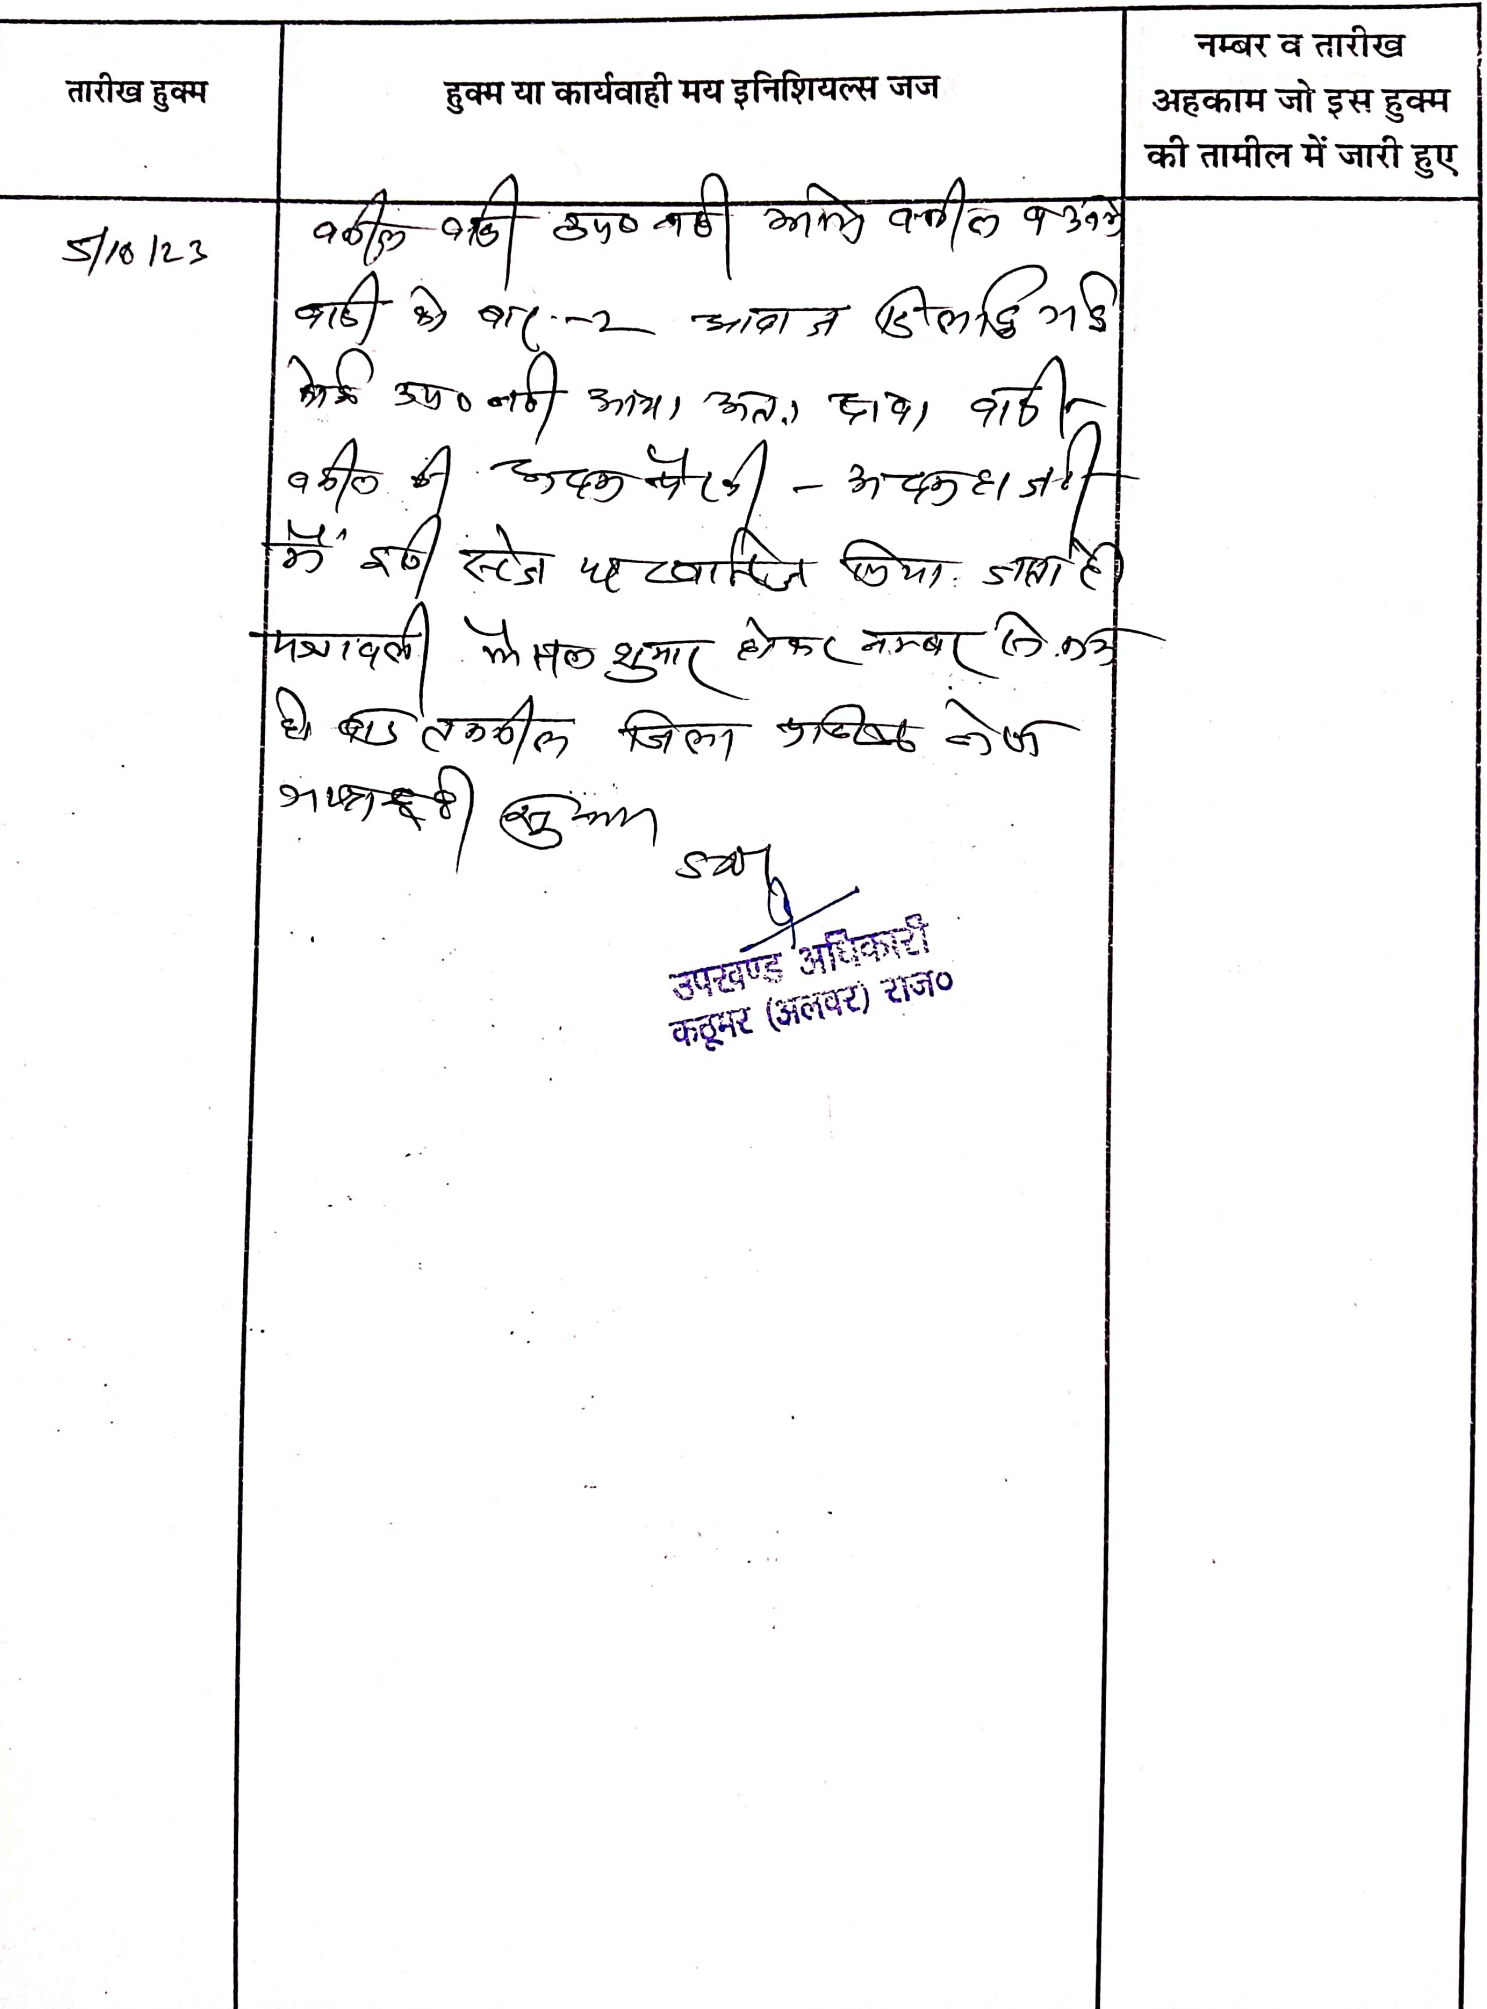 तारीख हुक्म
हुक्म या कार्यवाही मय इनिशियल्स जज
नम्बर व तारीख
अहकाम जो इस हुक्म
की तामील में जारी हुए
5/10/23
वकील वादी उप० नही वकील व उनके
वादी को बार-2 आवाज दिलाई गई
कोई उप० नही आया अतः दावा वादी
वकील की अदम पैरवी - अदम हाजरी
में इसी स्टेज पर खारिज किया जाता है
पत्रावली फैसल शुमार होकर नम्बर से कम
हो बाद तकमील जिला
सुनाया
SDO
उपखण्ड अधिकारी
कठूमर (अलवर) राज०